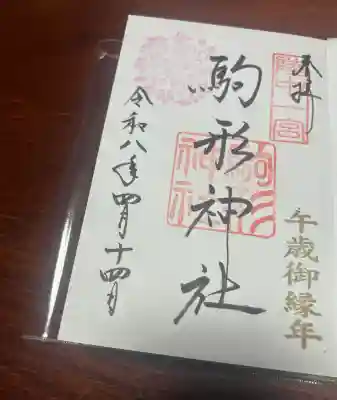 奉拝
陸中一宮
午歳御縁年
駒形神社
駒形
神社
令和八年四月十四日